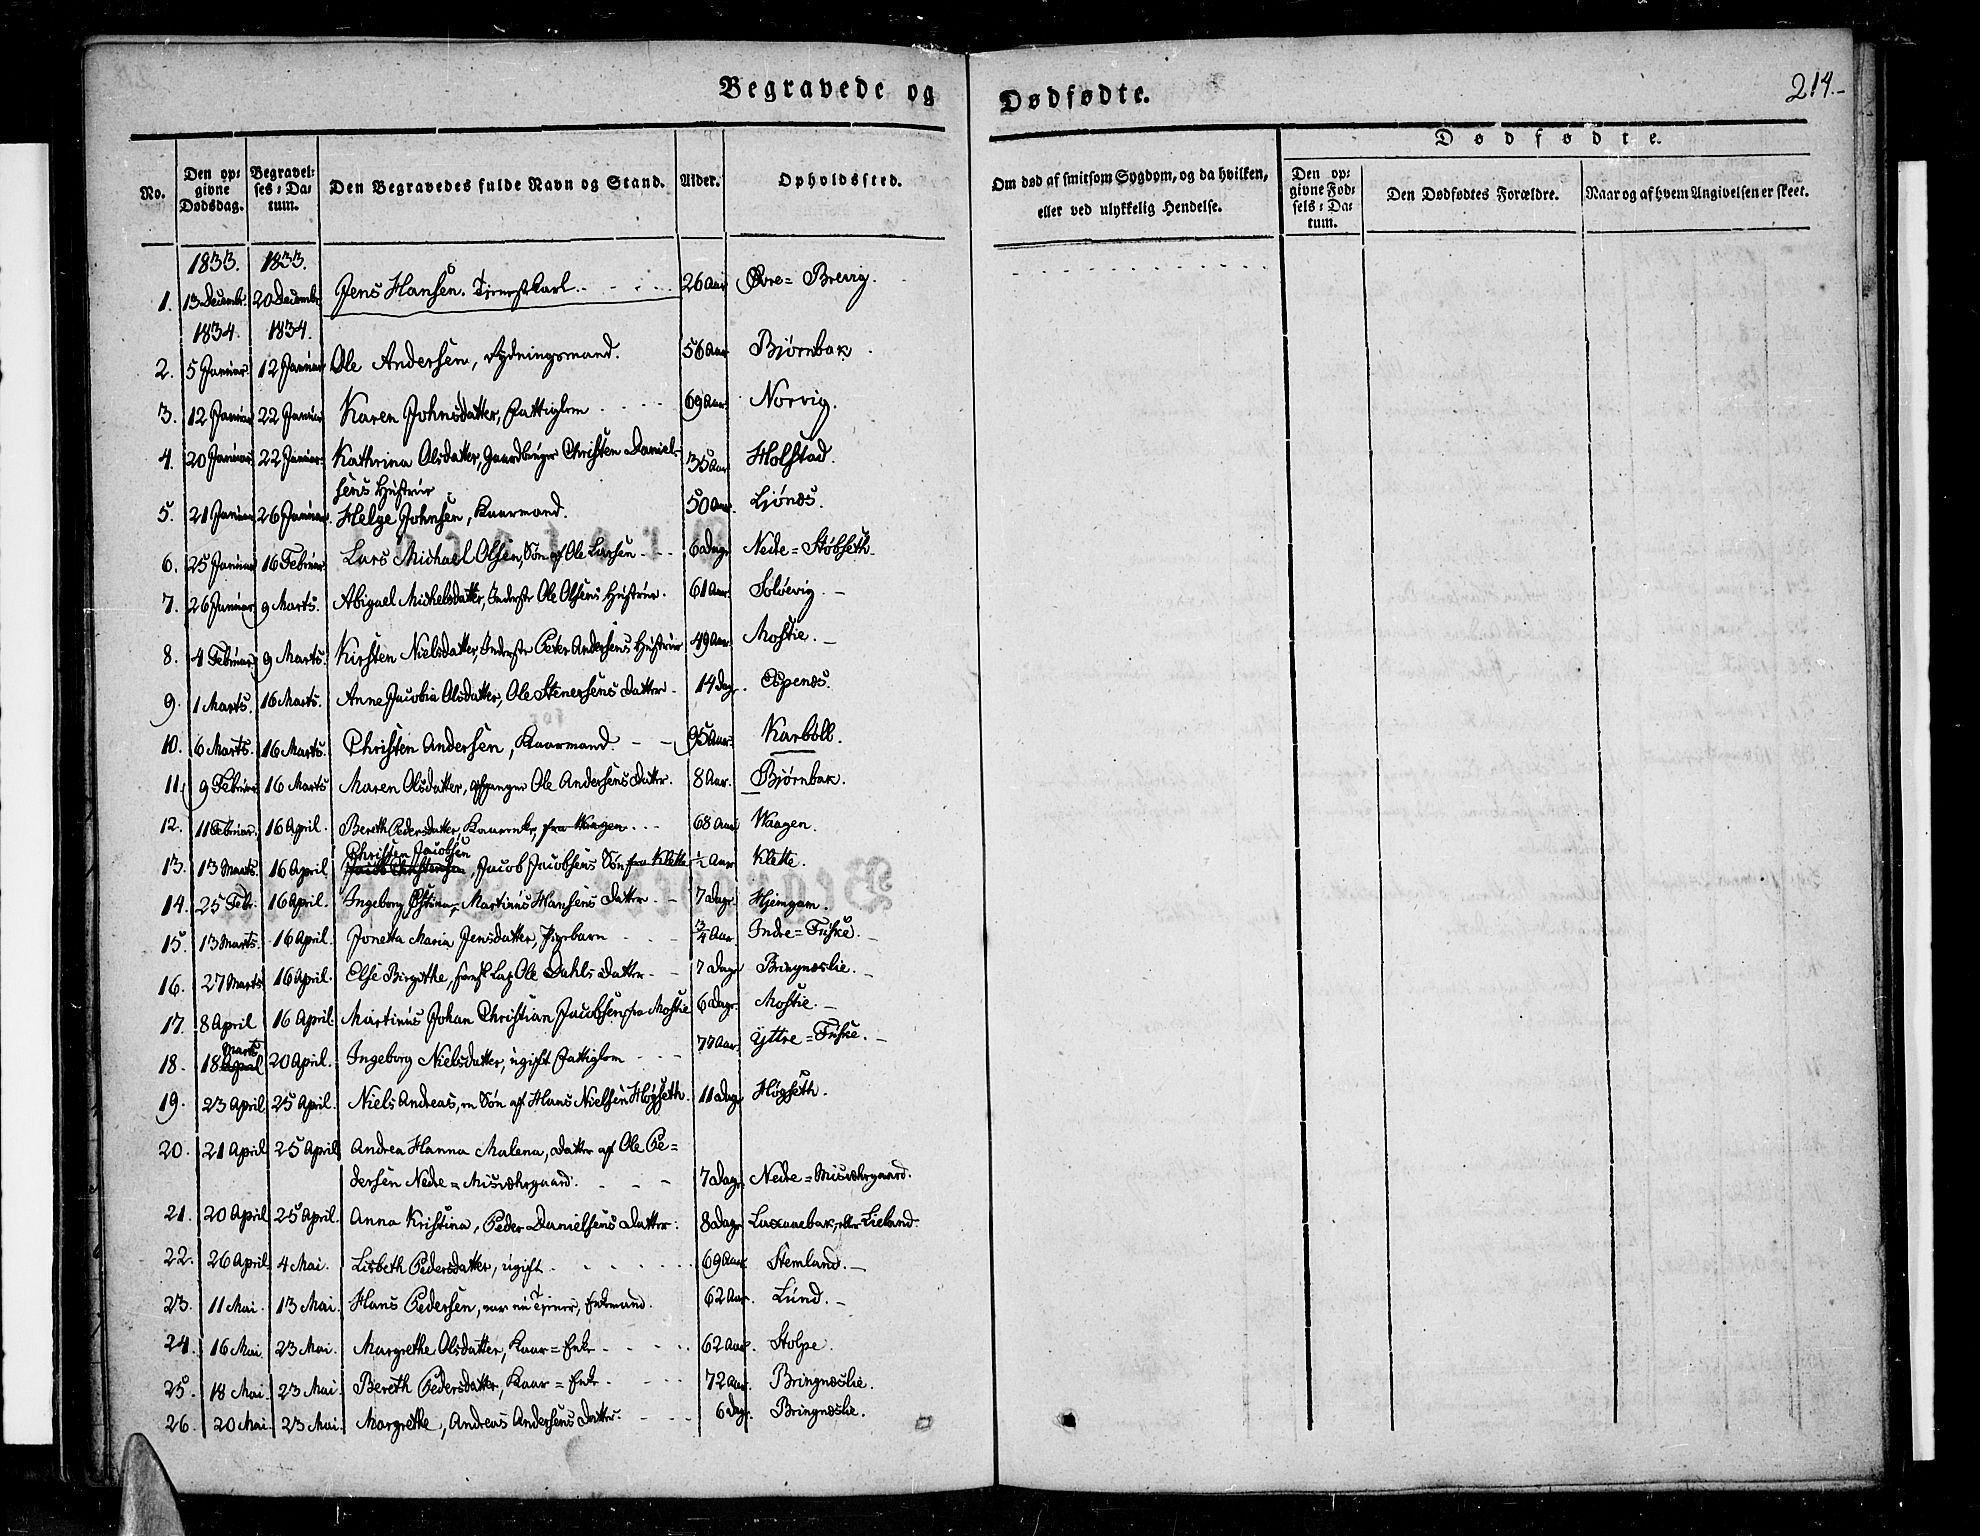 Begravede og
Dødfødte.
214.-
No.
Den op-
givne
Dødsdag.
Begravel-
ses-Da-
tum.
Den Begravedes fulde Navn og Stand.
Alder.
Opholdssted.
Om død af smitsom Sygdom, og da hvilken,
eller ved ulykkelig Hendelse.
Dødfødte.
Den op-
givne Fød-
sels-Da-
tum.
Den Dødfødtes Forældre.
Naar og af hvem Angivelsen er skeet.
1833. 1833.
1. 13 Decembr. 20 Decembr. Jens Hansen. Tjenestkarl. 26 Aar Øvre=Brevig.
1834. 1834.
2. 5 Januar. 12 Januar Ole Andersen, Rydningsmand. 56 Aar Bjørnbak.
3. 12 Januar 22 Januar Karen Johnsdatter, Fattiglem 69 Aar. Norvig.
4. 20 Januar. 22 Januar. Kathrina Olsdatter, Gaardbruger Christen Daniel- 35 Aar Holstad.
sens Hustrue
5. 21 Januar 26 Januar. Helge Johnsen, Kaarmand. 50 Aar. Ljønes.
6. 25 Januar 16 Februar. Lars Michael Olsen, Søn af Ole Larsen 6 Dage Nedre=Støbseth.
7. 26 Januar 9 Marts. Abigael Michelsdatter, Inderste Ole Olsens Hustrue. 61 Aar. Soløevig.
8. 4 Februar 9 Marts. Kirsten Nielsdatter, Inderste Peter Andersens Hustrue 49 Aar. Mostie.
9. 1 Marts. 16 Marts. Anne Jacobia Olsdatter, Ole Stenersens Datter 14 Dag. Espenes.
10. 6 Marts. 16 Marts. Christen Andersen, Kaarmand. 95 Aar. Karbøll.
11. 9 Februar 16 Marts Maren Olsdatter, afgangne Ole Andersens Datter. 8 Aar. Bjørnbak.
12. 11 Februar. 16 April. Bereth Pedersdatter, Kaarenke, fra Waagen 68 Aar Waagen.
Christen Jacobsen
13. 13 Marts. 16 April. Jacob Christensen, Jacob Jacobsens Søn fra Klette ½ Aar Klette.
14. 25 Febr. 16 April. Ingeborg Stina, Martinus Hansens Datter 7 Dage. Hjemgam.
15. 13 Marts. 16 April. Jonetta Maria Jensdatter, Pigebarn ¾ Aar. Indre=Fuske.
16. 27 Marts 16 April. Else Birgitthe, svensk Lap Ole Dahls Datter 7 Dage Bringneslie.
17. 8 April 16 April. Martinus Johan Christian Jacobsen, fra Mostie 6 Dage. Mostie.
Marts
18. 18 April 20 April. Ingeborg Nielsdatter, ugift Fattiglem 77 Aar. Yttre=Fuske.
19. 23 April. 25 April. Niels Andreas, en Søn af Hans Nielsen Høgseth. 11 Dage Høgseth.
20. 21 April 25 April Andrea Hanna Malena, Datter af Ole Pe-
dersen Nedre=Misværgaard. 7 Dage. Nedre=Misværgaard.
21. 20 April 25 April. Anna Kristina, Peder Danielsens Datter. 8 Dage Laxaaebak, eller Lieland.
22. 26 April 4 Mai. Lisbeth Pedersdatter, ugift 69 Aar. Stemland.
23. 11 Mai. 13 Mai. Hans Pedersen, var nu Tjener, Enkemand. 62 Aar. Lund.
24. 16 Mai. 23 Mai. Margrethe Olsdatter, Kaar=Enke 62 Aar. Stolpe.
25. 18 Mai. 23 Mai. Bereth Pedersdatter, Kaar=Enke. 72 Aar. Bringneslie.
26. 20 Mai. 23 Mai. Margrethe, Andreas Andersens Datter. 6 Dage. Bringneslie.